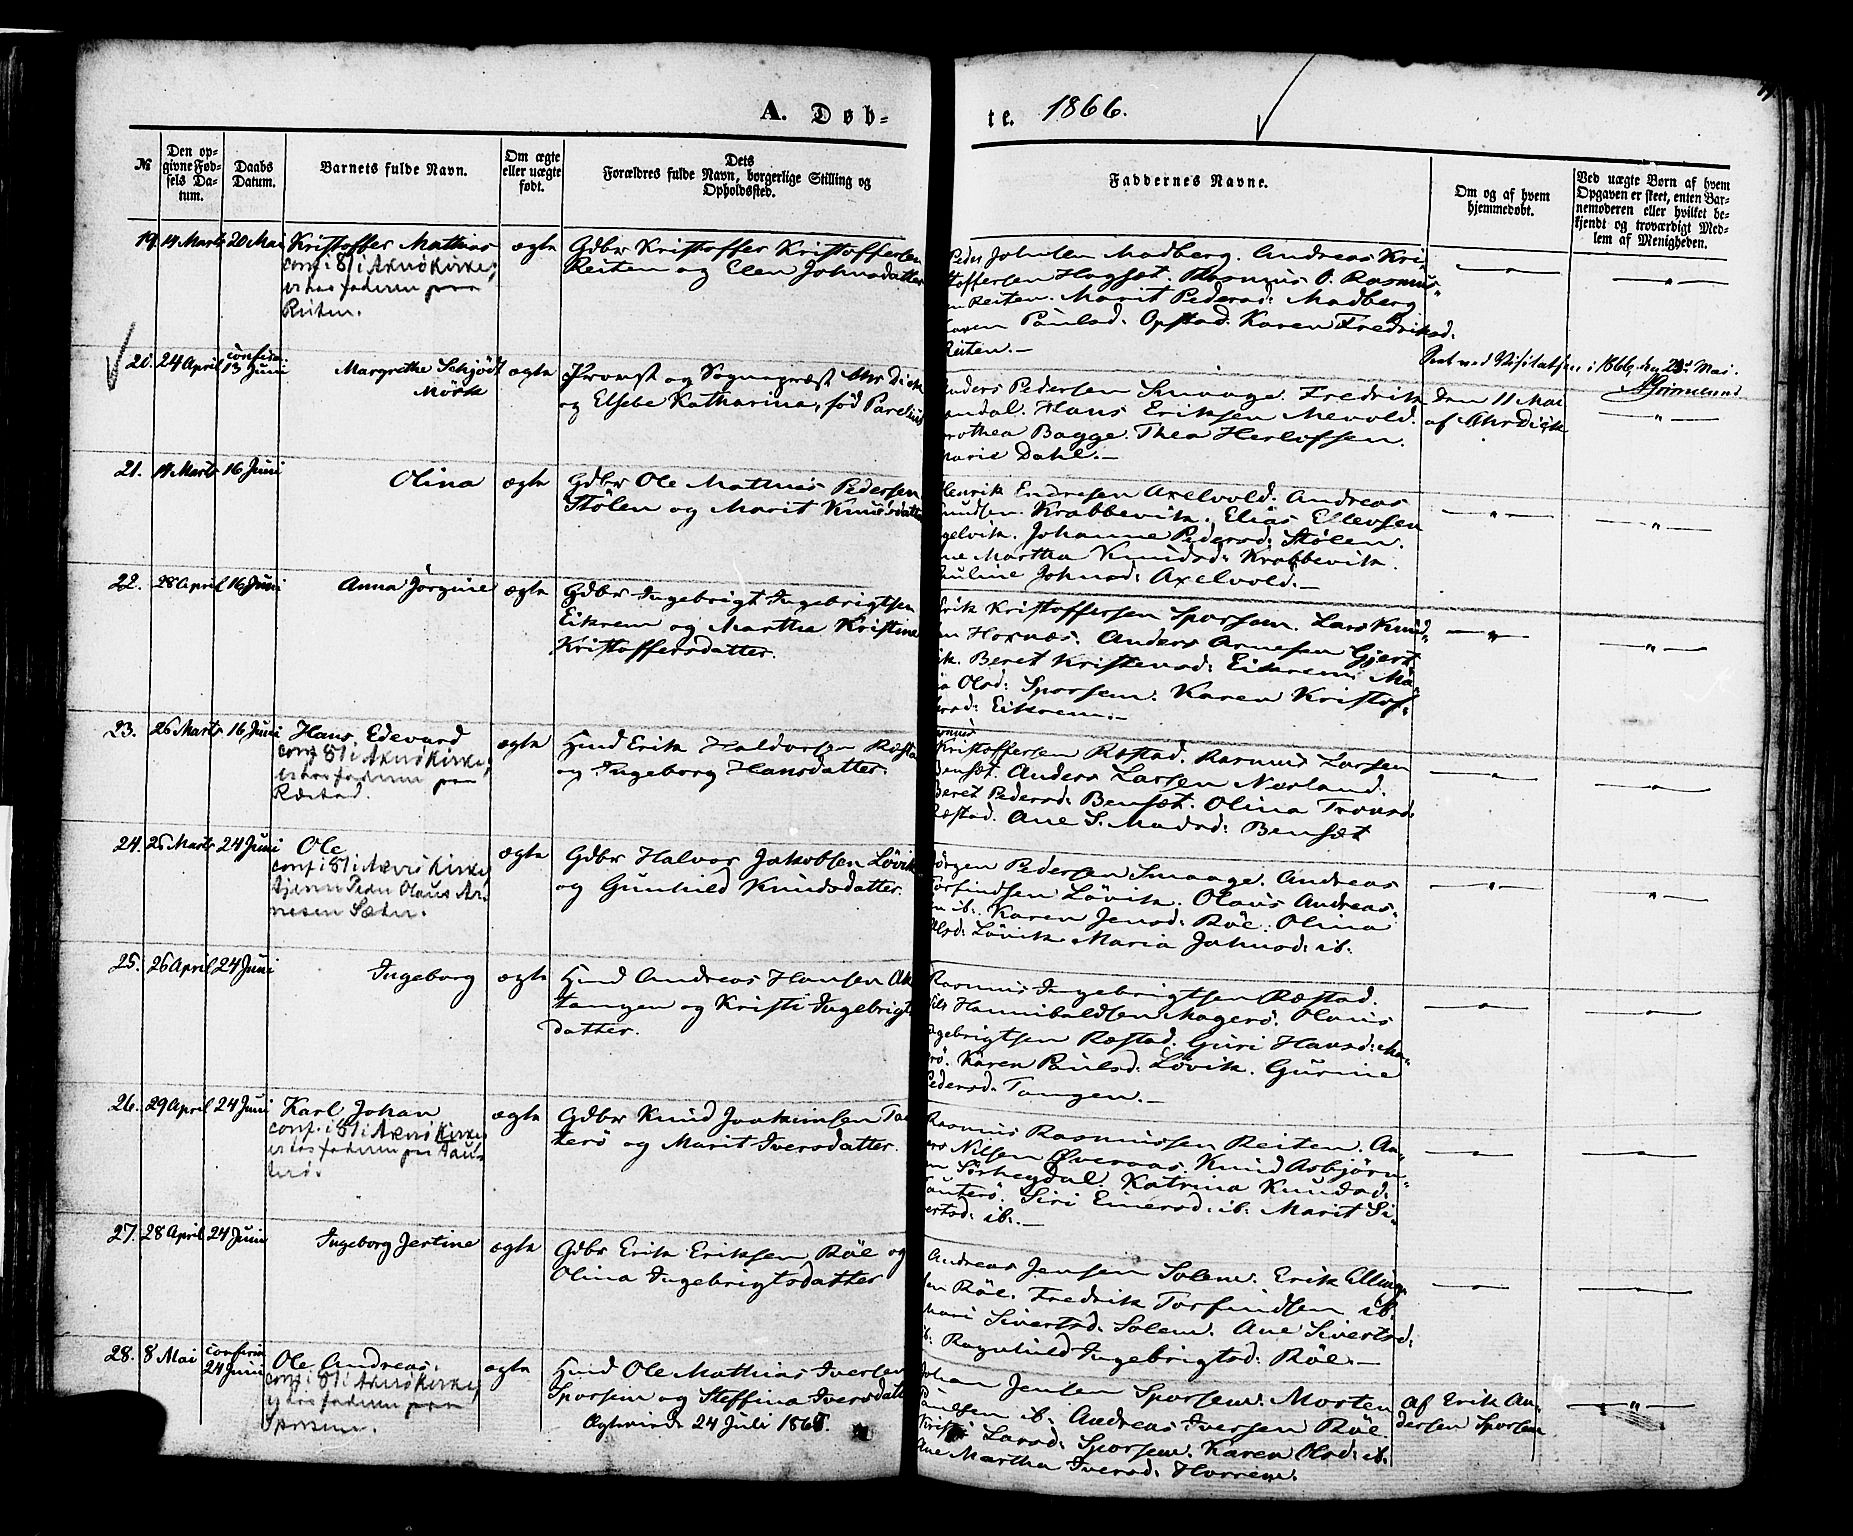 A. Døb-
te. 1866.
№
Den op-
givne Fød-
sels Da-
tum.
Daabs
Datum.
Barnets fulde Navn.
Om ægte
eller uægte
født.
Dets
Forældres fulde Navn, borgerlige Stilling og
Opholdssted.
Faddernes Navne.
Om og af hvem
hjemmedøbt.
Ved uægte Børn af hvem
Opgaven er skeet, enten Bar-
nemoderen eller hvilket be-
kjendt og troværdigt Med-
lem af Menigheden.
19. 14 Marts 20 Mai Kristoffer Mathias ægte Gdbr Kristoffer Kristoffersen
conf i 81 i Akerø Kirke,
er hos faderen paa
Reiten.
Reiten og Elen Johnsdatter
Peder Johnsen Madberg. Andreas Kri-
stoffersen Hagset. Rasmus O. Rasmus-
Reiten. Marit Pedersd: Madberg
Paulsd. Opstad. Karen Fredriksd.
Reiten.—
20. 24 April confirm 13 Juni Margrethe Schjødt ægte Provst og Sognepræst Chr Dick
Mörk
og Elsebe Katharina, fød Parelius
Anders Pedersen Smaage. Fredrik
Hans Eriksen Mevold.
Dorothea Bagge. Thea Herlofsen.
Marie Dahl.—
Den 11 Mai
af Chr Dick
Seet ved Visitatsen i 1866, den 23d Mai.
Grimelund
21. 14 Marts 16 Juni Olina ægte Gdbr Ole Mathias Pedersen
Stölen og Marit Knudsdatter
Henrik Endresen Axelvold. Andreas
Knudsen Krabbevik. Elias Ellevsen
Johanne Pedersd: Stölen.
Ane Martha Knudsd: Krabbevik.
Pauline Johnsd: Axelvold.—
22. 28 April 16 Juni Anna Jörgine ægte Gdbr Ingebrigt Ingebrigtsen
Eikrem og Martha Kristine
Kristoffersdatter.
Erik Kristoffersen Sporsem. Lars Knud-
sen Hornæs. Anders Arnesen Gjert-
vik. Beret Kristensd: Eikrem. Ma-
ria Olsd: Sporsem. Karen Kristof-
fersd: Eikrem.—
23. 26 Marts 16 Juni Hans Edevard ægte Hmd Erik Haldorsen Ræstad
conf 81 i Akerø Kirke,
er hos faderen paa
Ræstad.
og Ingeborg Hansdatter.
Kristoffersen Ræstad. Rasmus Larsen
Bensæt. Anders Larsen Nerland.
Beret Pedersd: Bensæt. Olina Tronsd:
Ræstad. Ane S. Madsd: Bensæt
24. 25 Marts 24 Juni Ole ægte Gdbr Halvor Jakobsen Lövik
conf i 81 i Akerø Kirke,
tjener Peder Olaus Ar-
nesen Sæter.
og Gunhild Knudsdatter.
Jörgen Pedersen Smaage. Andreas
Torfindsen Lövik. Olaus Andreas-
sen ib. Karen Jensd: Röe. Olina
Olsd: Lövik. Maria Johnsd: ib.
25. 26 April 24 Juni Ingeborg ægte Hmd Andreas Hansen
tangen og Kristi Ingebrigts
datter.
Rasmus Ingebrigtsen Ræstad.
Nils Hannibaldsen Magerö. Olaus
Ingebrigtsen Ræstad. Guri Hansd: Ma-
gerö. Karen Paulsd: Lövik. Gurine
Pedersd: Tangen.—
26. 29 April 24 Juni Karl Johan ægte Gdbr Knud Joakimsen Tau
conf i 81 i Akerø Kirke,
er hos faderen paa Tau-
terø.
terö og Marit Iversdatter.
Rasmus Rasmussen Reiten. An-
ders Nilsen Överaas. Knud Asbjörn-
sen Sörheydal. Katrina Knudsd:
Tauterö. Siri Einersd: ib. Marit Si-
vertsd: ib.—
27. 28 April 24 Juni Ingeborg Jertine ægte Gdbr Erik Eriksen Röe og
Olina Ingebrigtsdatter
Andreas Jensen Solem. Erik Elling-
sen Röe. Fredrik Torfindsen ib.
Mari Sivertsd: Solem. Ane Sivertsd:
ib. Ragnhild Ingebrigtsd: Röe.—
28. 8 Mai confirm 24 Juni Ole Andreas. ægte Hmd Ole Mathias Iversen
conf i 81 i Akerø Kirke,
er hos faderen paa
Sporsem.
Sporsem og Steffina Iversdatter
Ægteviede 24 Juli 1865.
Johan Jensen Sporsem. Morten
Paulsen ib. Andreas Iversen Röe.
Kristi Larsd: Sporsem. Karen Olsd: ib.
Ane Martha Iversd: Horrem.
af Erik An-
dersen Sporsem